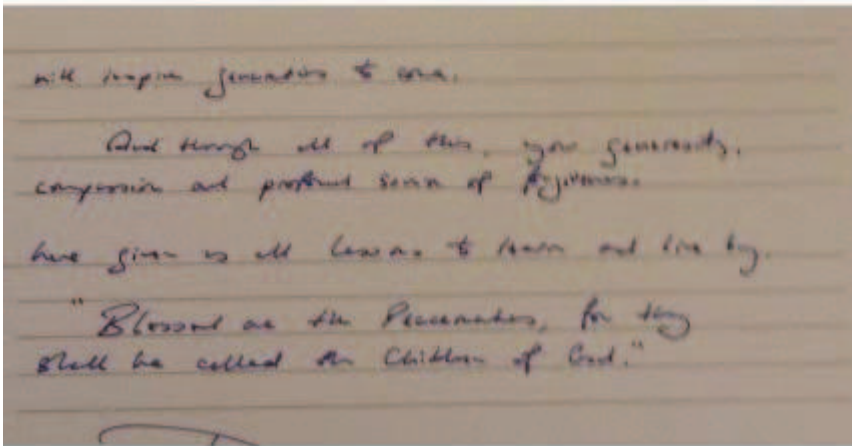 will inspire generations to come.
And through all of this, your generosity,
compassion and profound sense of forgiveness.
have given us all lessons to learn and live by.
"Blessed are the Peacemakers, for they
shall be called the Children of God."